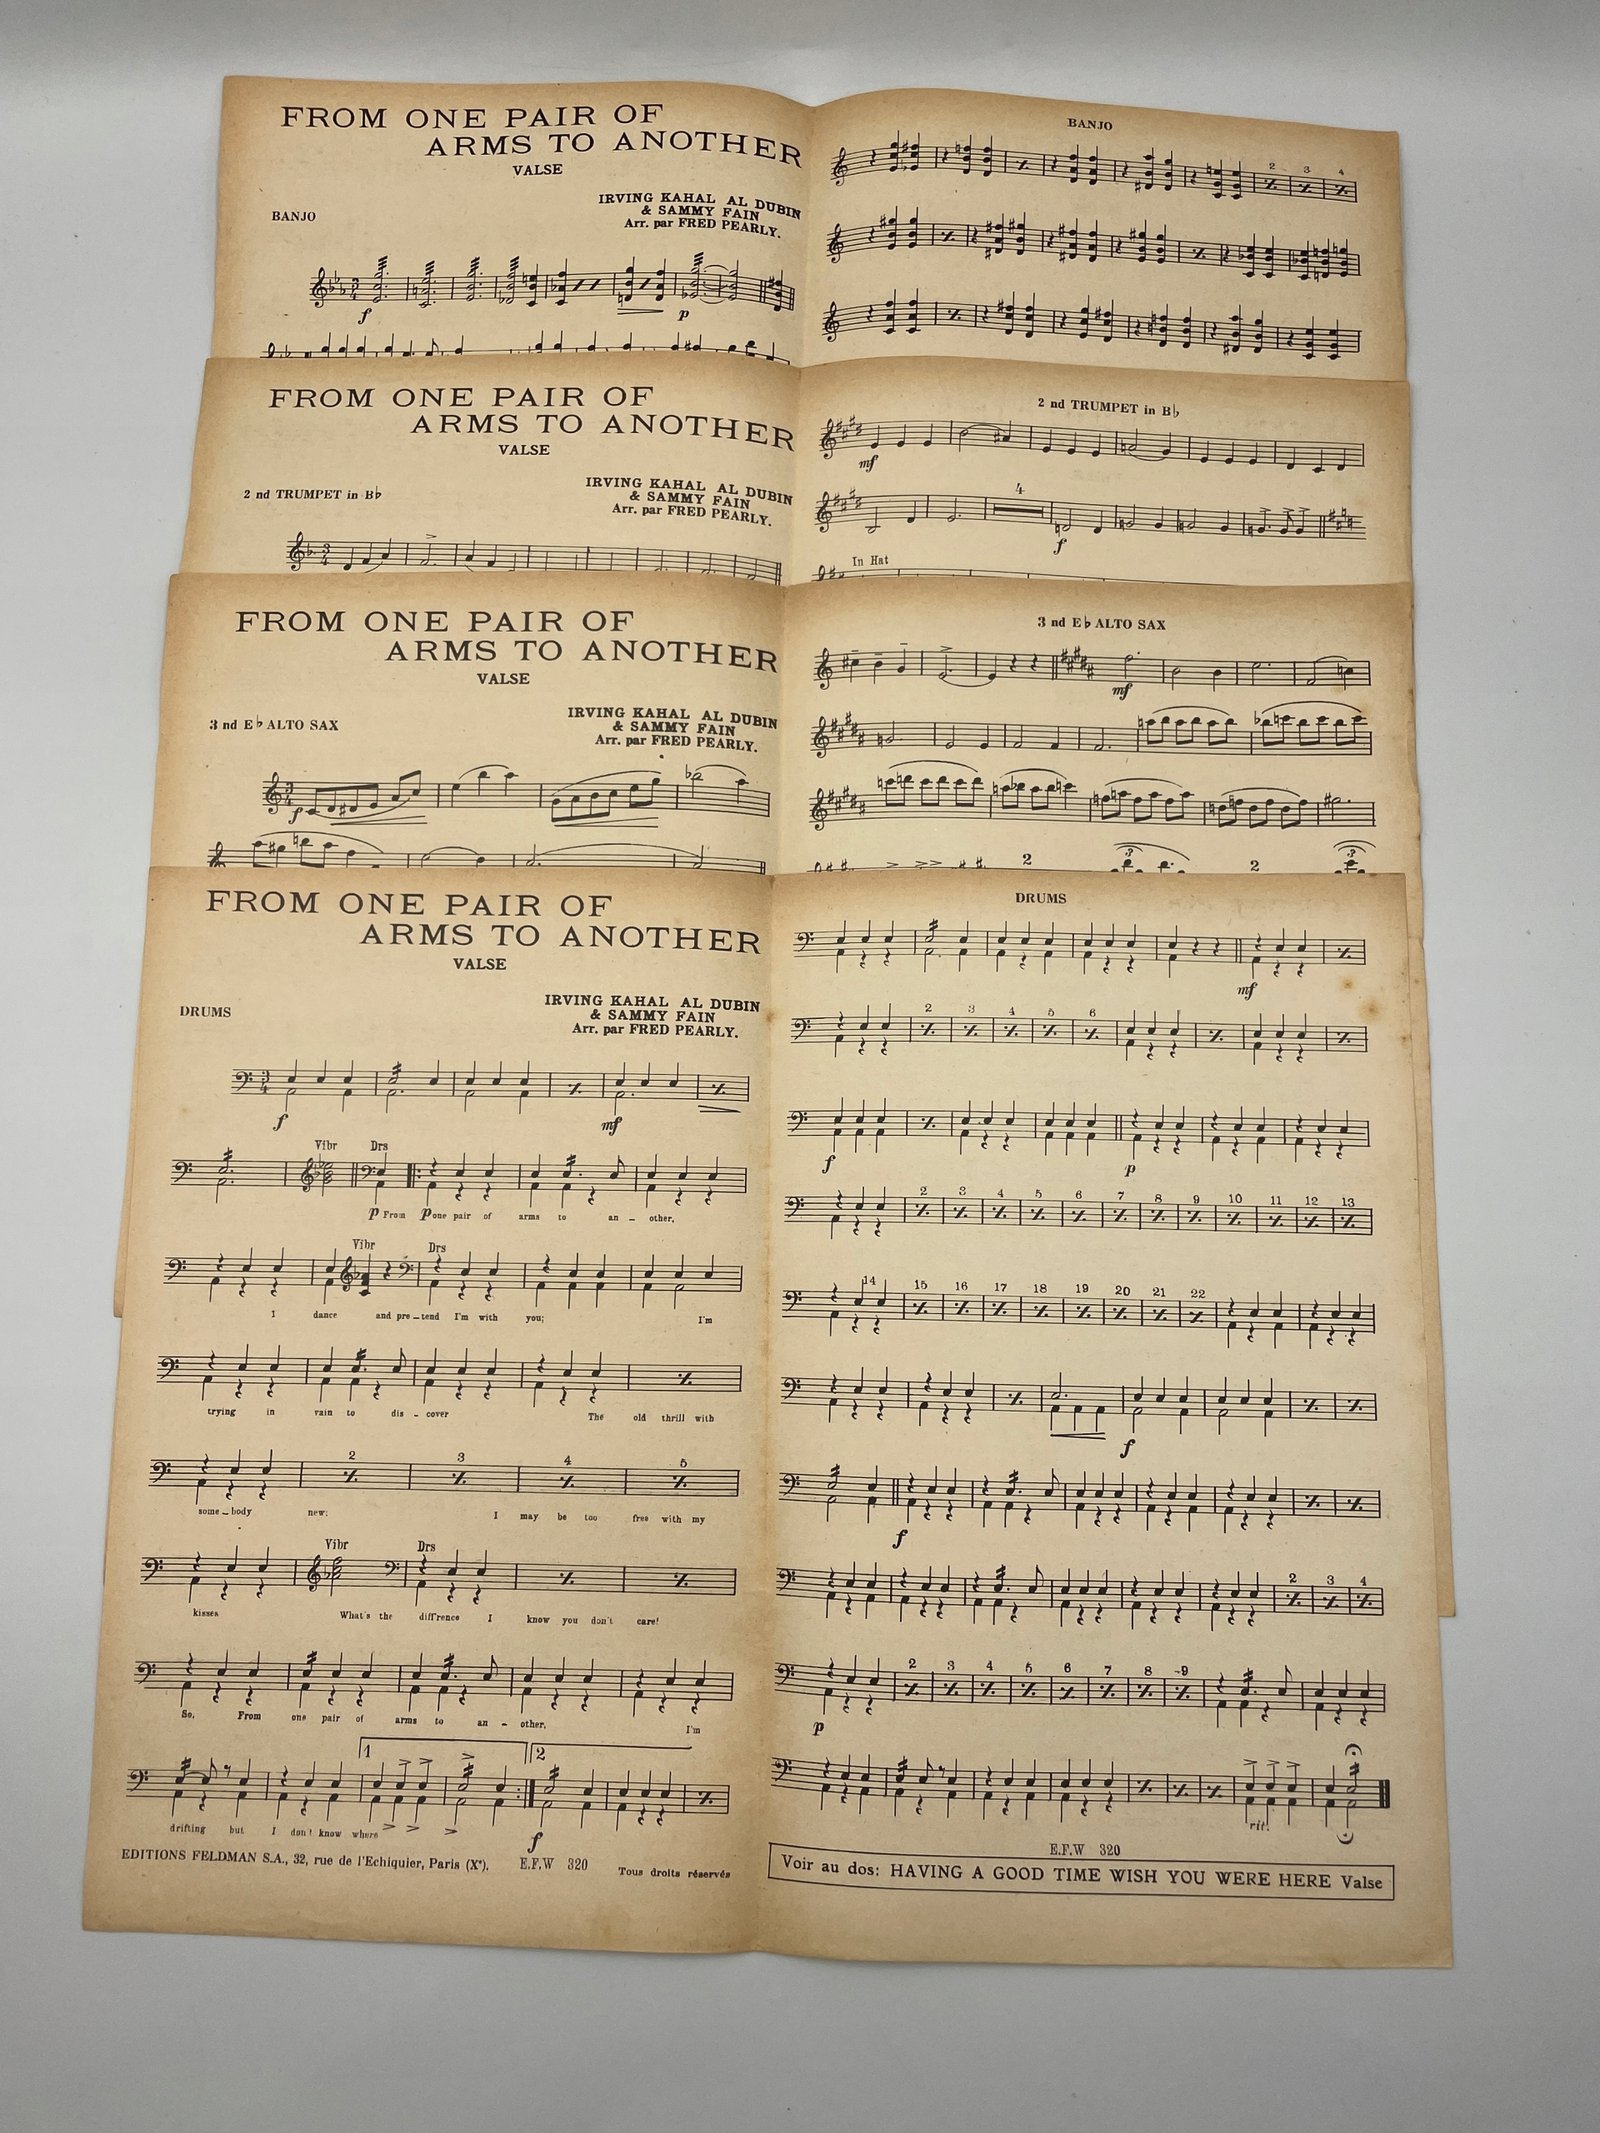 FROM ONE PAIR OF
ARMS TO ANOTHER
VALSE
IRVING KAHAL AL DUBIN
& SAMMY FAIN
Arr. par FRED PEARLY.
BANJO
f
p
BANJO
2 3 4
FROM ONE PAIR OF
ARMS TO ANOTHER
VALSE
2 nd TRUMPET in B♭
IRVING KAHAL AL DUBIN
& SAMMY FAIN
Arr. par FRED PEARLY.
2 nd TRUMPET in B♭
mf
4
f
In Hat
FROM ONE PAIR OF
ARMS TO ANOTHER
VALSE
3 nd E♭ ALTO SAX
IRVING KAHAL AL DUBIN
& SAMMY FAIN
Arr. par FRED PEARLY.
f
3 nd E♭ ALTO SAX
mf
2 3 2 3
FROM ONE PAIR OF
ARMS TO ANOTHER
VALSE
DRUMS
IRVING KAHAL AL DUBIN
& SAMMY FAIN
Arr. par FRED PEARLY.
3 4
f mf
Vibr Drs
p From p one pair of arms to an – other,
Vibr Drs
I dance and pre – tend I'm with you; I'm
trying in vain to dis – cover The old thrill with
2 3 4 5
some – body new; I may be too free with my
Vibr Drs
kisses What's the diff'rence I know you don't care!
So, From one pair of arms to an – other, I'm
1 2
drifting but I don't know where
f
EDITIONS FELDMAN S.A., 32, rue de l'Echiquier, Paris (Xe). E.F.W 320 Tous droits réservés
DRUMS
mf
2 3 4 5 6
f p
2 3 4 5 6 7 8 9 10 11 12 13
14 15 16 17 18 19 20 21 22
f
f
2 3 4
2 3 4 5 6 7 8 9
p
rit.
E.F.W 320
Voir au dos: HAVING A GOOD TIME WISH YOU WERE HERE Valse